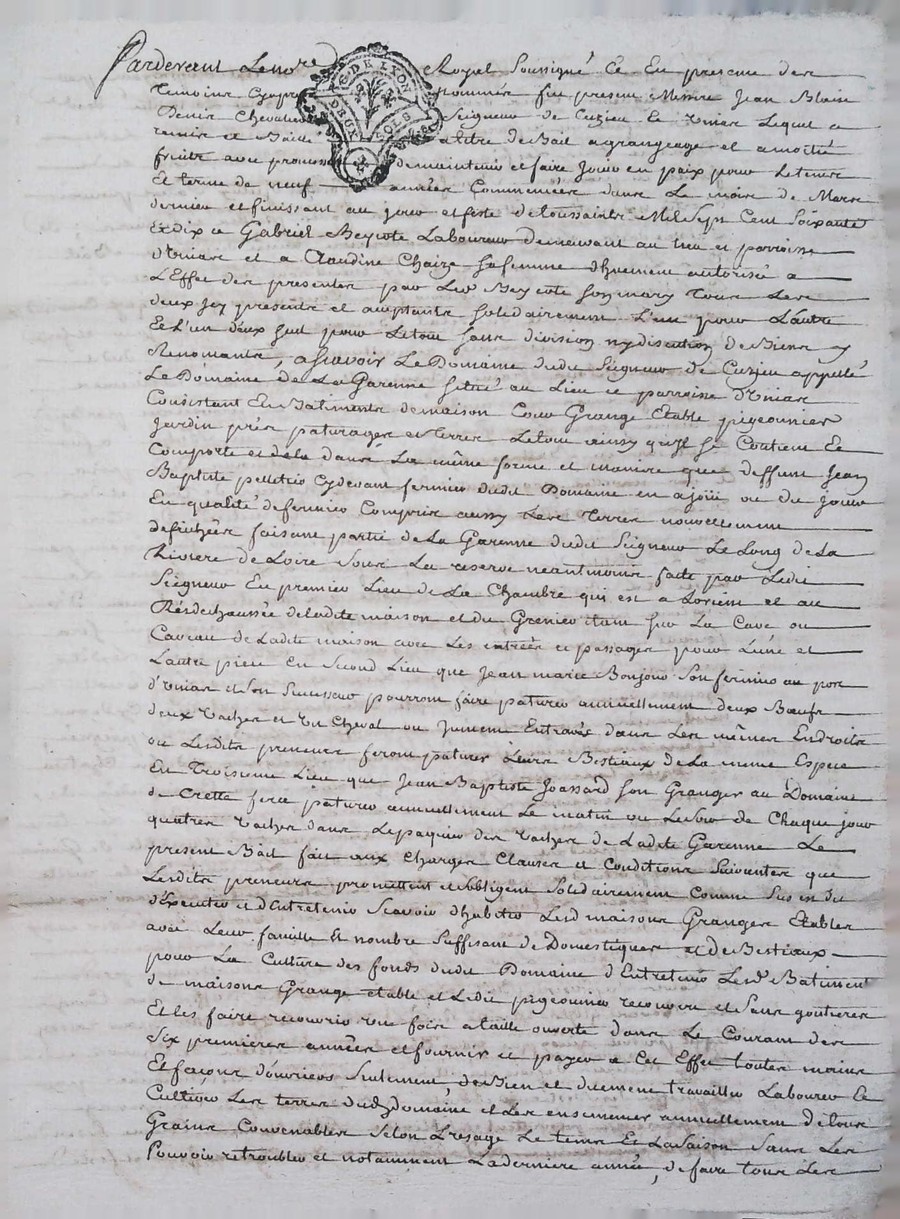 Pardevant Le no.re Royal Soussigné Et En presence des
GEN. DE LYON
DEUX SOLS
Temoins Cyapres Nommés fut present Messire Jean Blaise
Denis Chevalier Seigneur de Cuzieu Le Unias Lequel a
remis et Baillé a titre de Bail a grangeage et a moitié
fruits avec promesse de maintenir et faire Jouir en paix pour Le tems
Et terme de neuf années Commencées dans Le mois de Mars
dernier et finissant au jour et feste de toussaints Mil Sept Cent Soixante
Et dix a Gabriel Beycote Laboureur demeurant au lieu et parroisse
d'Unias et a Claudine Chaize sa femme dhuement autorisée a
L'Effet des presentes par Led Beycote son mary tous Les
deux Jcy presents et acceptants solidairement L'un pour L'autre
Et L'un d'eux seul pour Le tout sans division ny discution de Biens y
Renoncants, a scavoir Le Domaine dudit Seigneur de Cuzieu appellé
Le Domaine de La Garenne situé au Lieu et parroisse d'Unias
Consistant En Batiments de maison Cour Grange Etable pigeonnier
Jardin prés paturages et Terres Le tout ainsy qu'il se Contient Et
Comporte et de la dans La même forme et maniere que deffunt Jean
Baptiste pelletier Cydevant fermier dudit Domaine en a joüi ou du jouir
En qualité de fermier Compris aussy Les Terres nouvellement
defrichées faisant partie de La Garenne dudit Seigneur Le Long de La
Riviere de Loire Sous La reserve neantmoins faite par Ledit
Seigneur En premier Lieu de La Chambre qui est a Lorient et au
Rés de chaussée de ladite maison et du Grenier étant sur La Cave ou
Caveau de Ladite maison avec Les entrées et passages pour L'une et
L'autre piece En second Lieu que Jean marie Bonjour son fermier au port
d'Unias et son successeur pourront faire paturer annuellement deux Bœufs
deux Vaches et Un Cheval ou Jument Entravés dans Les mêmes Endroits
ou Lesdits preneurs feront paturer Leurs Bestiaux de La meme Espece
En Troisieme Lieu que Jean Baptiste Joassard son Granger au Domaine
de Crette fera paturer annuellement Le matin ou Le soir de Chaque jour
quatres Vaches dans Le paquier des Vaches de Ladite Garenne Le
present Bail fait aux Charges Clauses et Conditions Suivantes que
Lesdits preneurs promettent et obligent Solidairement Comme Sus est dit
d'Executer et d'Entretenir Scavoir d'habiter Lesd maisons Granges Etables
avec Leur famille Et nombre Suffisant de Domestiques et de Bestiaux
pour La Culture des fonds dudit Domaine d'Entretenir Lesd Batiments
de maisons Grange etable et Ledit pigeonnier recouvert et sans goutieres
Et les faire recouvrir une fois a taille ouverte dans Le Courant des
Six premieres années et fournir et payer a Cet Effet toutes mains
Et façons d'ouvriers Seulement de Bien et duement travailler Labourer Et
Cultiver Les terres dud domaine et Les ensemencer annuellement de tous
Grains Convenables Selon L'usage Le tems Et La Saison Sans Les
Pouvoir retroubler et notamment La derniere année, de faire tous Les